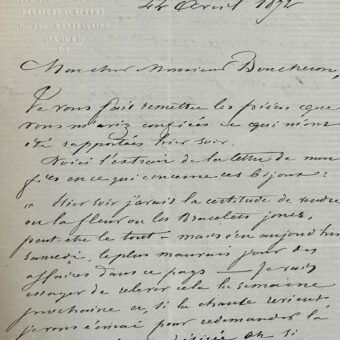 Avril 1872
Mon cher Monsieur Boucheron,
Je vous fait remettre les pièces que
vous m'aviez confiées et qui m'ont
été rapportées hier soir.
Voici l'extrait de la lettre de mon
fils en ce qui concerne ces bijoux:
Hier soir j'avais la certitude de vendre
ou la fleur ou les Bracelets jones,
peut-être le tout — mais aujourd'hui
samedi, le plus mauvais jour des
affaires dans ce pays — Je vais
essayer de relever cela la semaine
prochaine et, si la chance revient,
je vous pour redemander la
si